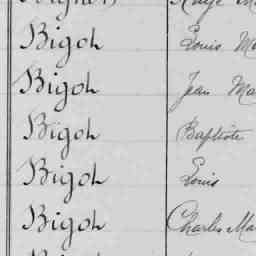 Bigoh Louis
Bigoh Jean
Bigoh Baptiste
Bigoh Louis
Bigoh Charles